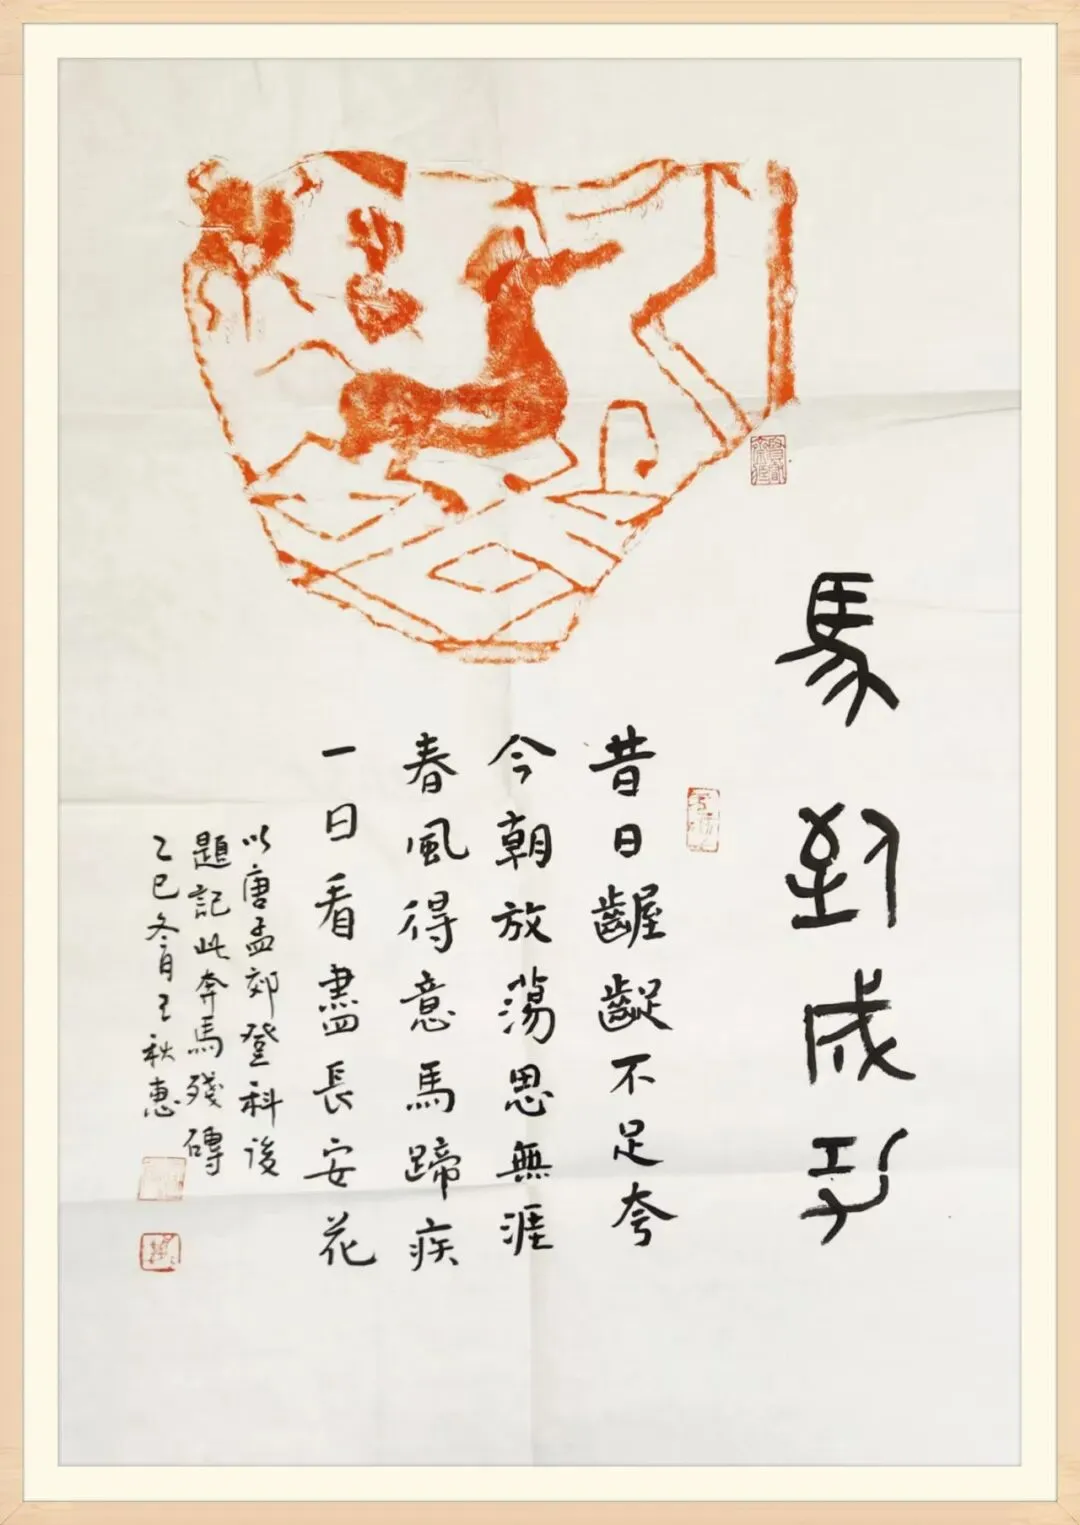 馬到成功
昔日齷齪不足夸
今朝放蕩思無涯
春風得意馬蹄疾
一日看盡長安花
以唐孟郊登科後
題記此奔馬殘磚
乙巳冬月王秋惠